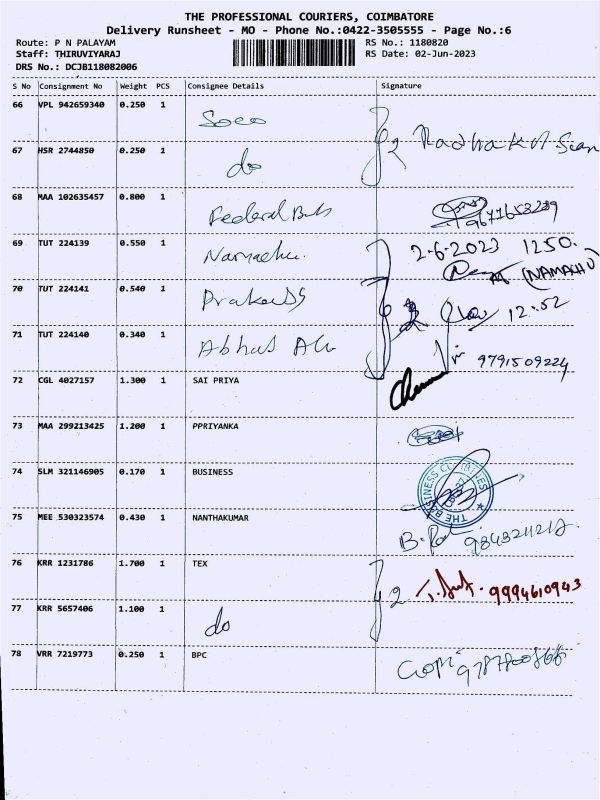 THE PROFESSIONAL COURIERS, COIMBATORE
Delivery Runsheet - MO - Phone No.:0422-3505555 - Page No.:6
Route: P N PALAYAM RS No.: 1180820
Staff: THIRUVIYARAJ RS Date: 02-Jun-2023
DRS No.: DCJB118082006
S No Consignment No Weight PCS Consignee Details Signature
66 VPL 942659340 0.250 1 Soco
67 HSR 2744850 0.250 1 do
68 MAA 102635457 0.800 1 Federal
69 TUT 224139 0.550 1 2-6-2023 1250.
(NAMACHU)
70 TUT 224141 0.540 1 12.52
71 TUT 224140 0.340 1 9791509224
72 CGL 4027157 1.300 1 SAI PRIYA
73 MAA 299213425 1.200 1 PPRIYANKA
74 SLM 321146905 0.170 1 BUSINESS THE BUSINESS
75 MEE 530323574 0.430 1 NANTHAKUMAR
76 KRR 1231786 1.700 1 TEX 2 9994610943
77 KRR 5657406 1.100 1 do
78 VRR 7219773 0.250 1 BPC Gopi